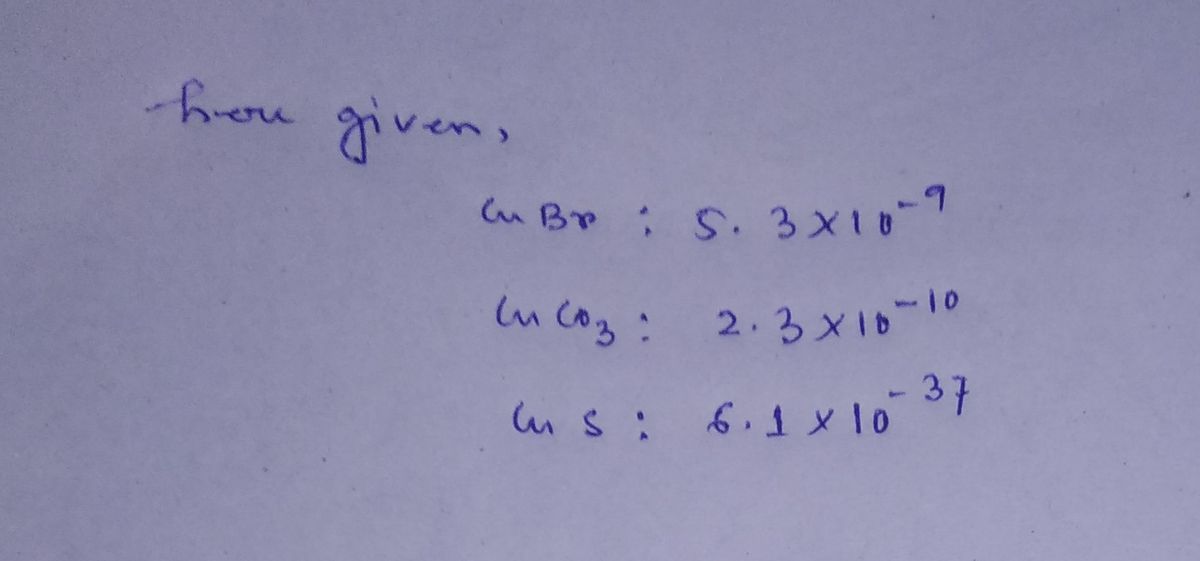 here given,
CuBr : 5.3×10⁻⁹
CuCO₃ : 2.3×10⁻¹⁰
CuS : 6.1×10⁻³⁷